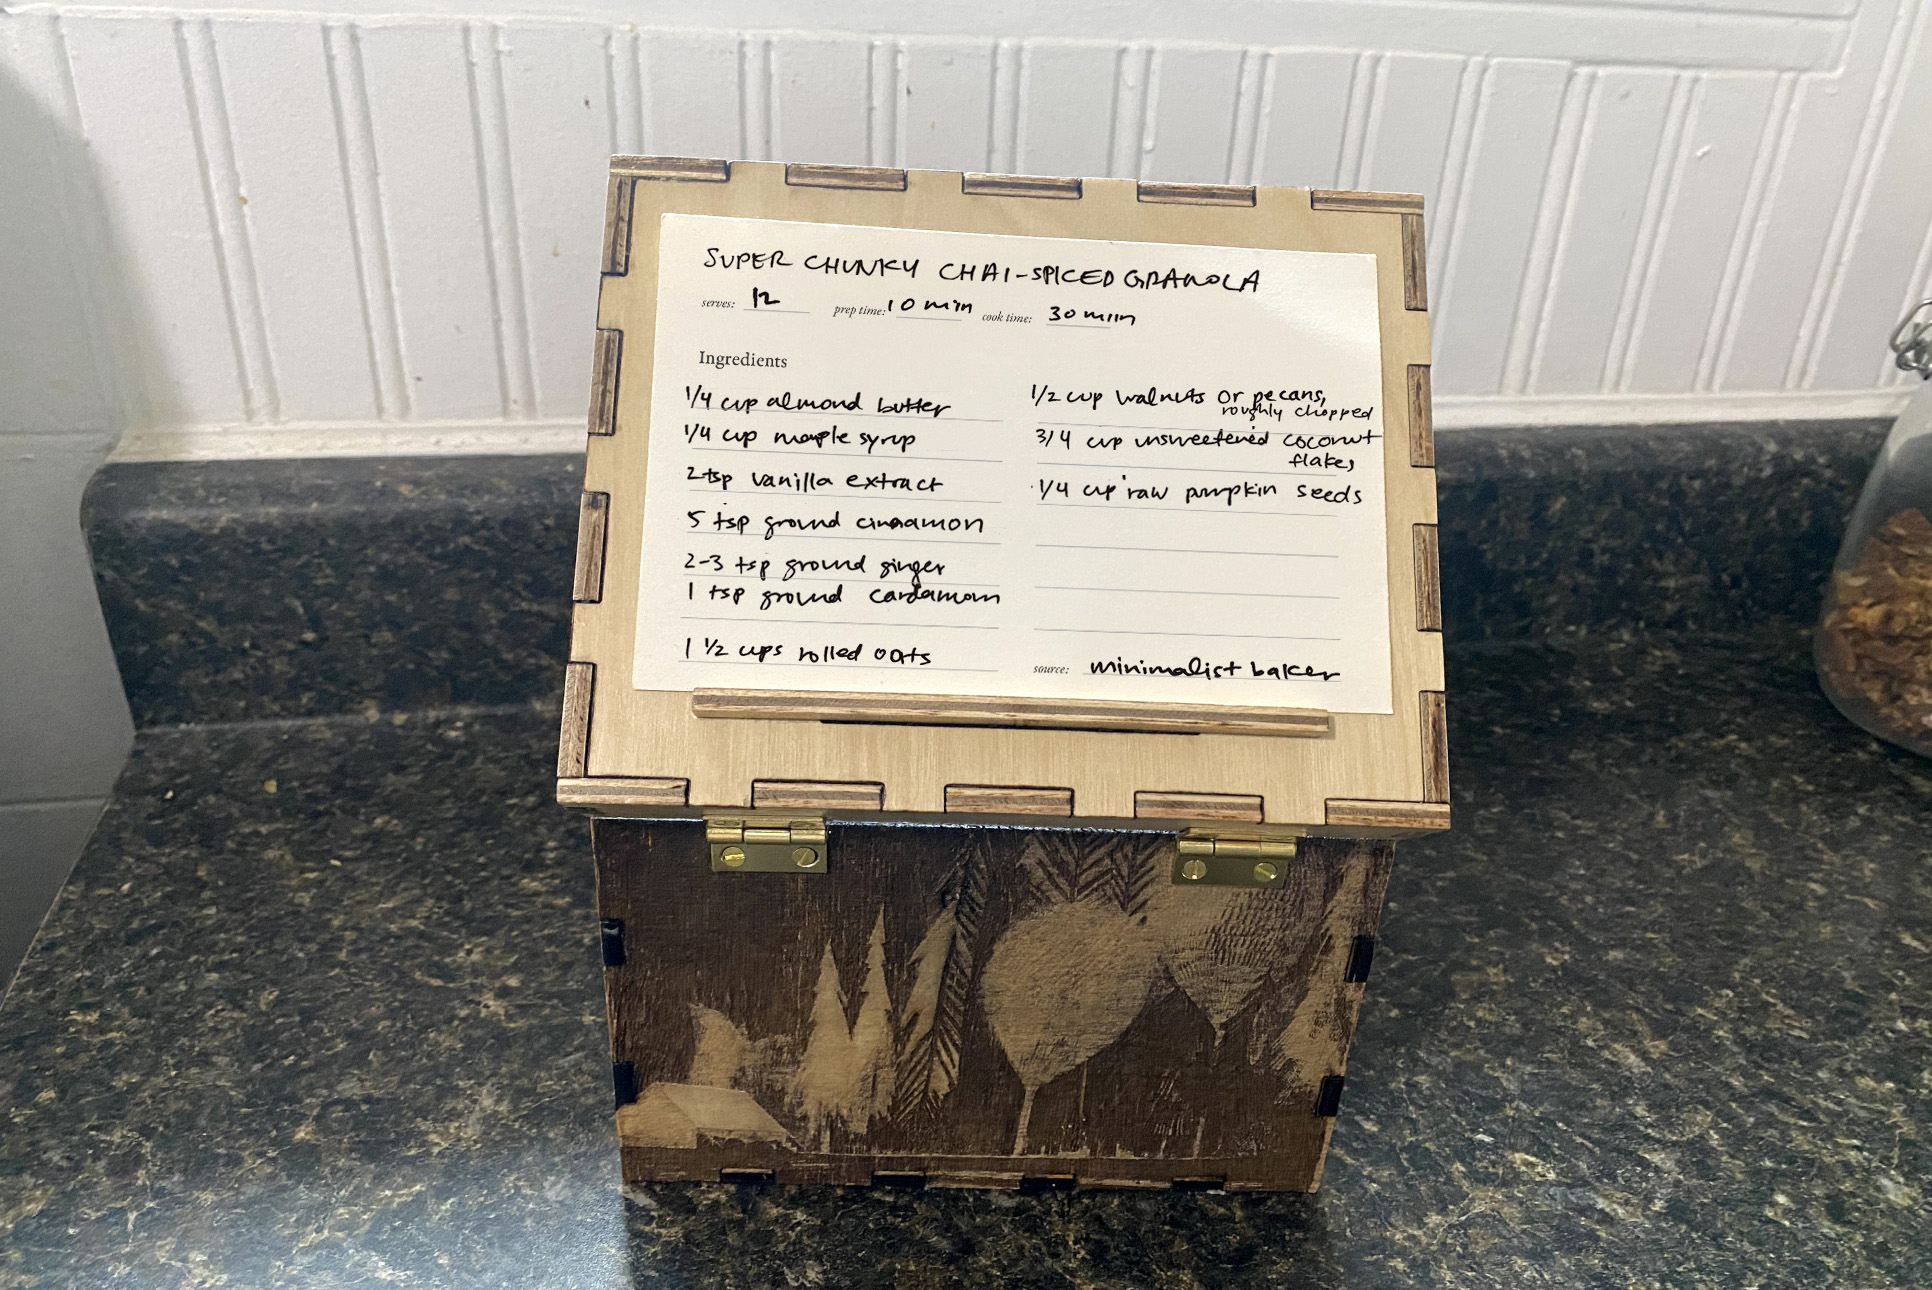 SUPER CHUNKY CHAI-SPICED GRANOLA
serves: 12 prep time: 10 min cook time: 30 min
Ingredients
1/4 cup almond butter
1/4 cup maple syrup
2 tsp vanilla extract
5 tsp ground cinnamon
2-3 tsp ground ginger
1 tsp ground cardamom
1 1/2 cups rolled oats
1/2 cup walnuts or pecans,
roughly chopped
3/4 cup unsweetened coconut
flakes
1/4 cup raw pumpkin seeds
source: minimalist baker